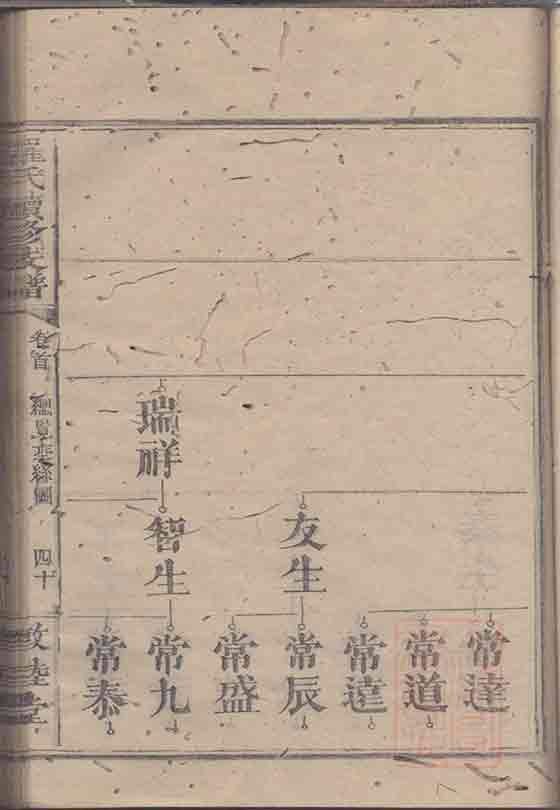 常達
常道
常達
友生
常辰
常盛
瑞祥
智生
常九
常泰
羅氏續修支譜
卷首
四十
敦睦堂